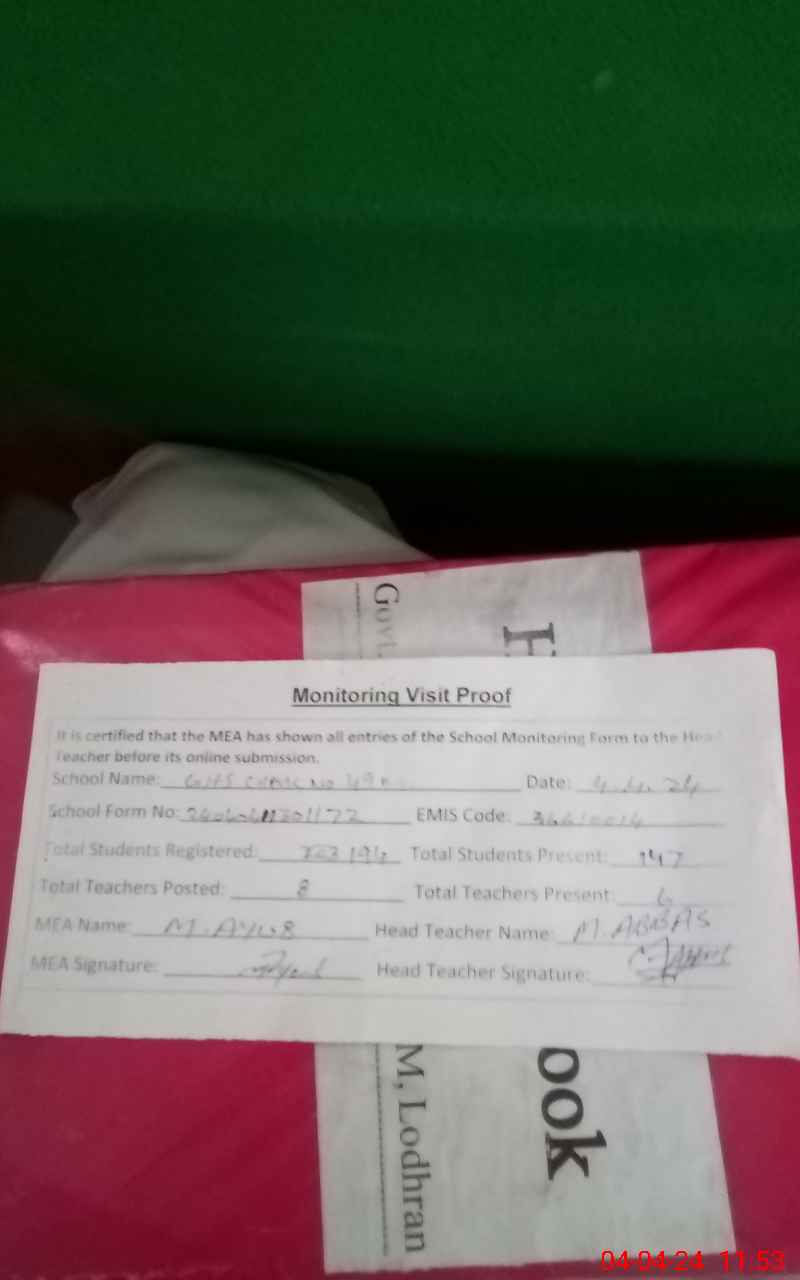 Govt.
Monitoring Visit Proof
It is certified that the MEA has shown all entries of the School Monitoring Form to the Head
Teacher before its online submission.
School Name: Date: 4.4.24
School Form No: EMIS Code:
Total Students Registered: 194 Total Students Present: 147
Total Teachers Posted: 8 Total Teachers Present: 6
MEA Name: M. AYUB Head Teacher Name: M. ABBAS
MEA Signature: Head Teacher Signature:
M, Lodhran
ook
04-04-24 11:53